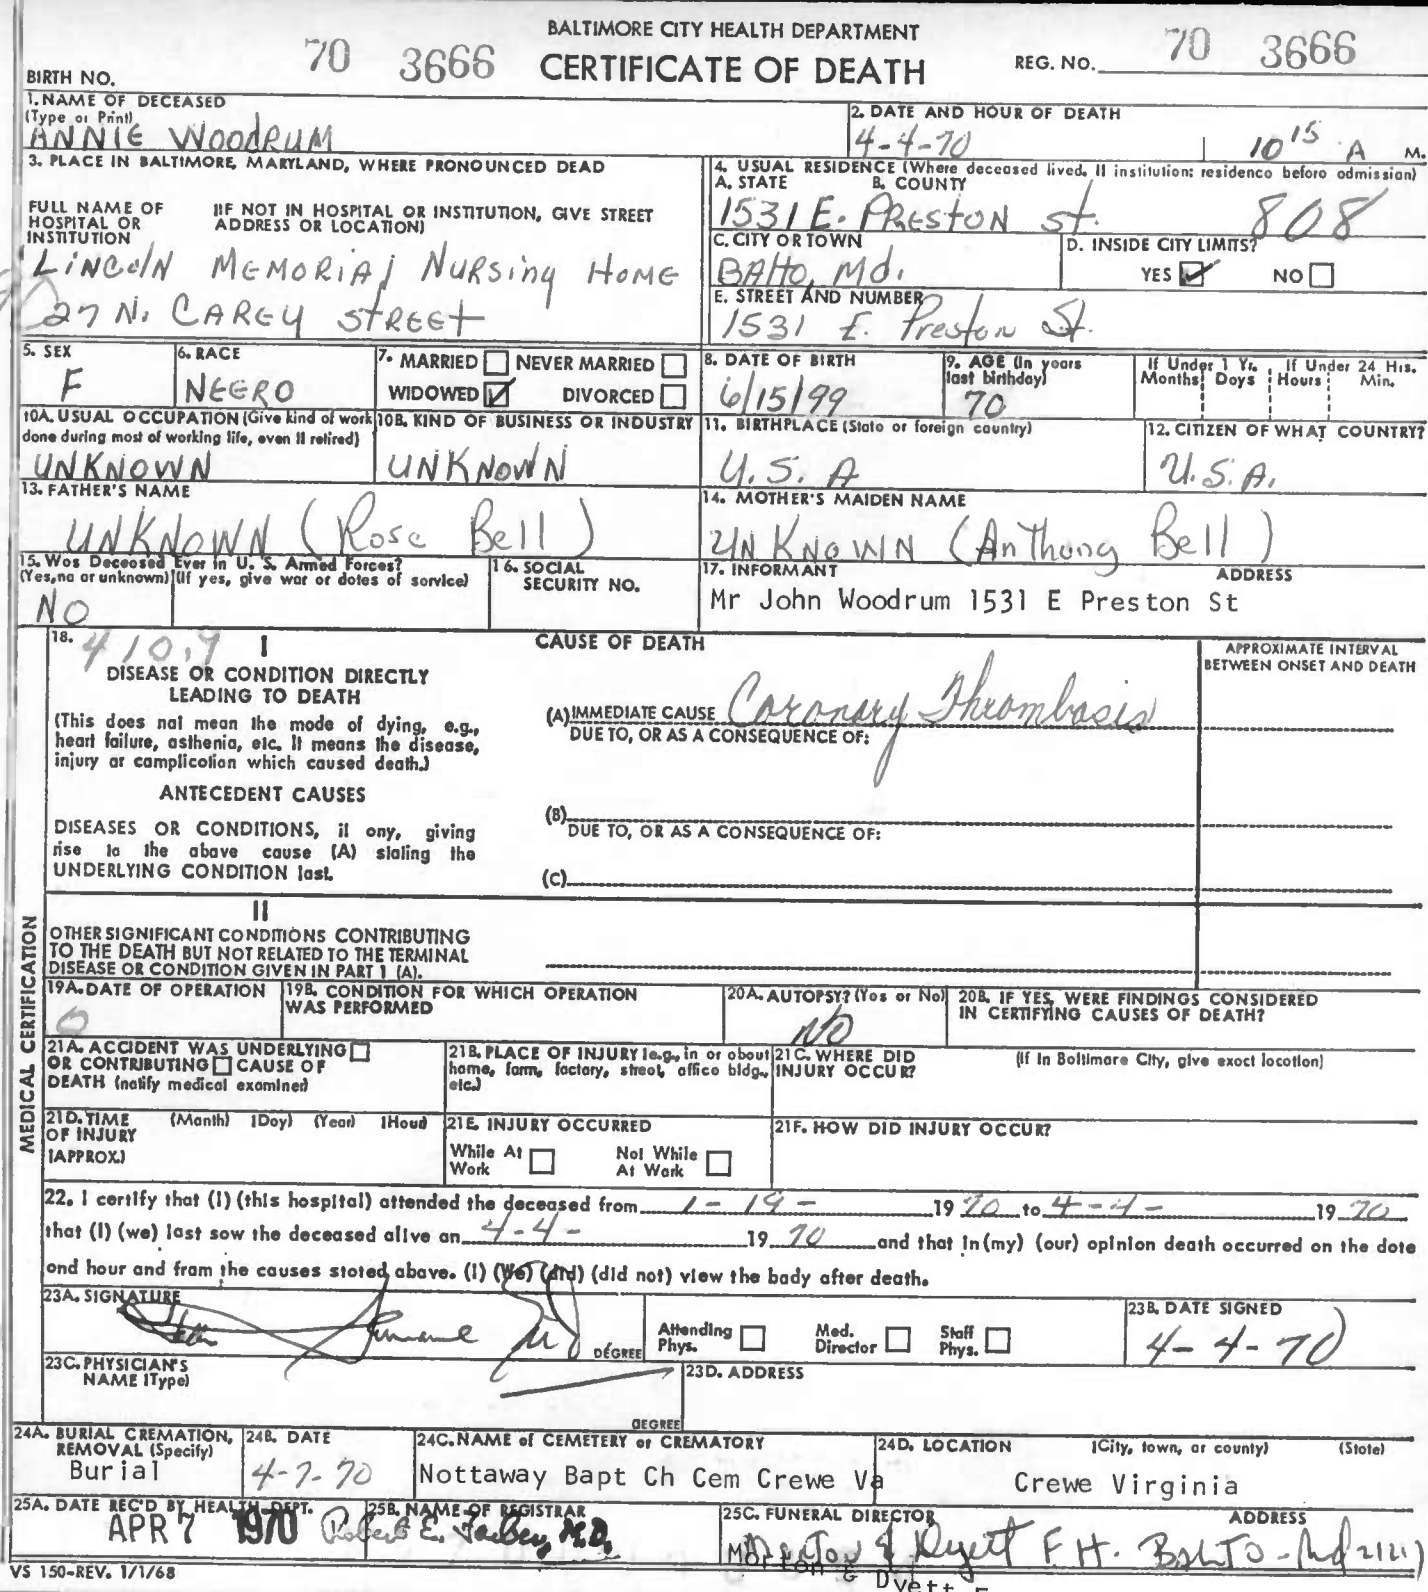 BALTIMORE CITY HEALTH DEPARTMENT
70 3666 CERTIFICATE OF DEATH REG. NO. 70 3666
BIRTH NO.
1. NAME OF DECEASED
(Type or Print)
ANNIE WOODRUM
2. DATE AND HOUR OF DEATH
4-4-70 10 15 A M.
3. PLACE IN BALTIMORE, MARYLAND, WHERE PRONOUNCED DEAD
FULL NAME OF HOSPITAL OR INSTITUTION
(IF NOT IN HOSPITAL OR INSTITUTION, GIVE STREET ADDRESS OR LOCATION)
LINCOLN MEMORIAL NURSING HOME
27 N. CAREY STREET
4. USUAL RESIDENCE (Where deceased lived. If institution: residence before admission)
A. STATE B. COUNTY
1531 E. PRESTON St. 808
C. CITY OR TOWN
BALTO, Md.
D. INSIDE CITY LIMITS?
YES NO
E. STREET AND NUMBER
1531 E. Preston St.
5. SEX
F
6. RACE
NEGRO
7. MARRIED NEVER MARRIED
WIDOWED DIVORCED
8. DATE OF BIRTH
6/15/99
9. AGE (In years last birthday)
70
If Under 1 Yr. Months Days
If Under 24 Hrs. Hours Min.
10A. USUAL OCCUPATION (Give kind of work done during most of working life, even if retired)
UNKNOWN
10B. KIND OF BUSINESS OR INDUSTRY
UNKNOWN
11. BIRTHPLACE (State or foreign country)
U.S.A
12. CITIZEN OF WHAT COUNTRY?
U.S.A.
13. FATHER'S NAME
UNKNOWN (Rose Bell)
14. MOTHER'S MAIDEN NAME
UNKNOWN (Anthony Bell)
15. Was Deceased Ever in U. S. Armed Forces?
(Yes, no or unknown) (If yes, give war or dates of service)
NO
16. SOCIAL SECURITY NO.
17. INFORMANT ADDRESS
Mr John Woodrum 1531 E Preston St
MEDICAL CERTIFICATION
18. 410.9 I
CAUSE OF DEATH
APPROXIMATE INTERVAL BETWEEN ONSET AND DEATH
DISEASE OR CONDITION DIRECTLY
LEADING TO DEATH
(This does not mean the mode of dying, e.g.,
heart failure, asthenia, etc. It means the disease,
injury or complication which caused death.)
(A) IMMEDIATE CAUSE Coronary Thrombosis
DUE TO, OR AS A CONSEQUENCE OF:
ANTECEDENT CAUSES
DISEASES OR CONDITIONS, if any, giving
rise to the above cause (A) stating the
UNDERLYING CONDITION last.
(B)
DUE TO, OR AS A CONSEQUENCE OF:
(C)
II
OTHER SIGNIFICANT CONDITIONS CONTRIBUTING
TO THE DEATH BUT NOT RELATED TO THE TERMINAL
DISEASE OR CONDITION GIVEN IN PART 1 (A).
19A. DATE OF OPERATION
0
19B. CONDITION FOR WHICH OPERATION WAS PERFORMED
20A. AUTOPSY? (Yes or No)
NO
20B. IF YES, WERE FINDINGS CONSIDERED IN CERTIFYING CAUSES OF DEATH?
21A. ACCIDENT WAS UNDERLYING
OR CONTRIBUTING CAUSE OF
DEATH (notify medical examiner)
21B. PLACE OF INJURY (e.g., in or about home, farm, factory, street, office bldg., etc.)
21C. WHERE DID INJURY OCCUR? (If in Baltimore City, give exact location)
21D. TIME OF INJURY (APPROX.) (Month) (Day) (Year) (Hour)
21E. INJURY OCCURRED
While At Work Not While At Work
21F. HOW DID INJURY OCCUR?
22. I certify that (I) (this hospital) attended the deceased from 1-19- 19 70 to 4-4- 19 70
that (I) (we) last saw the deceased alive on 4-4- 19 70 and that in (my) (our) opinion death occurred on the date
and hour and from the causes stated above. (I) (We) (did) (did not) view the body after death.
23A. SIGNATURE
DEGREE
Attending Phys. Med. Director Staff Phys.
23B. DATE SIGNED
4-4-70
23C. PHYSICIAN'S NAME (Type)
DEGREE
23D. ADDRESS
24A. BURIAL CREMATION, REMOVAL (Specify)
Burial
24B. DATE
4-7-70
24C. NAME of CEMETERY or CREMATORY
Nottaway Bapt Ch Cem Crewe Va
24D. LOCATION (City, town, or county) (State)
Crewe Virginia
25A. DATE REC'D BY HEALTH DEPT.
APR 7 1970
25B. NAME OF REGISTRAR
Robert E. Farber, M.D.
25C. FUNERAL DIRECTOR ADDRESS
Morton & Dyett F.H. Balto-Md 21217
Morton & Dyett F
VS 150-REV. 1/1/68